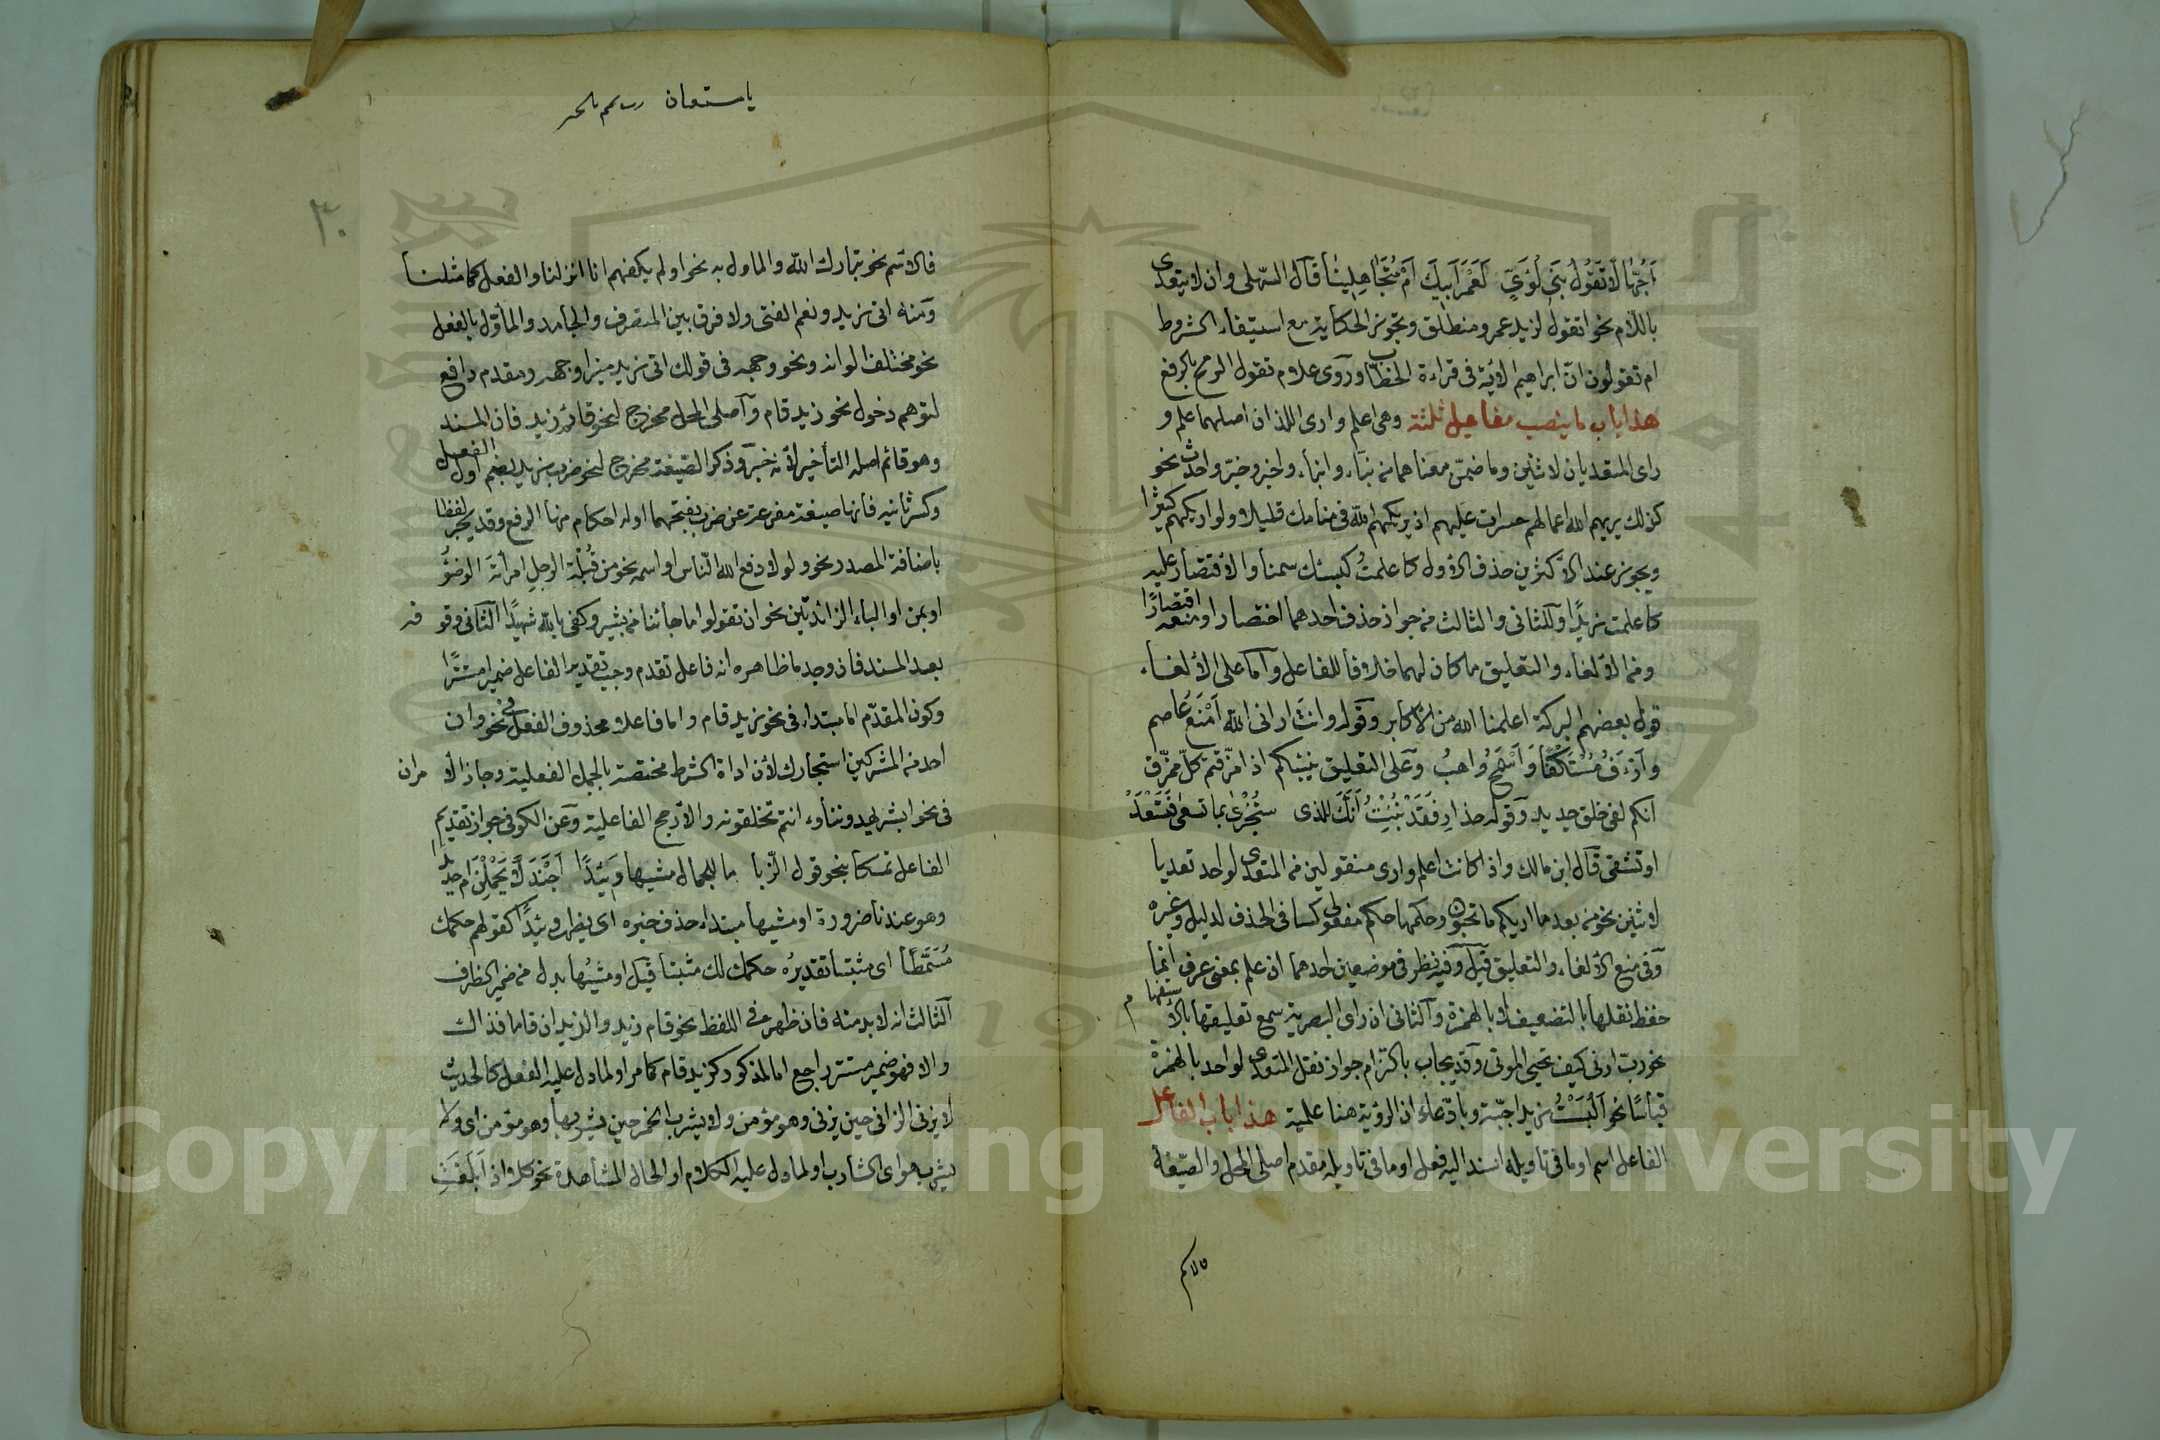 أجهالا تقول بني لؤي لعمر أبيك أم متجاهلينا قال السهيلي وان لا يتعدى
باللام نحو اتقول لزيد عمرو منطلق وتجوز الحكاية مع استيفاء الشروط
ام تقولون ان ابراهيم الاية في قراءة الخطاب وروى علام تقول الرمح بالرفع
هذا باب ما ينصب مفاعيل ثلثة وهي اعلم وارى اللذان اصلهما علم و
راى المتعديان لاثنين وما ضمن معناهما من نبأ وانبأ واخبر وخبر وحدث نحو
كذلك يريهم الله اعمالهم حسرات عليهم اذ يريكهم الله في منامك قليلا ولو اريكهم كثيرا
ويجوز عند الاكثرين حذف الاول كاعلمت كبشك سمينا والاقتصار عليه
كاعلمت زيدا وللثاني والثالث من جواز حذف احدهما اختصارا ومنعه اقتصارا
ومن الالغاء والتعليق ما كان لهما خلافا للفاعل وأما على الالغاء
قول بعضهم البركة اعلمنا الله من الاكابر وقوله وانت اراني الله أمنع عاصم
وأرءف مستكفا وأسمح واهب وعلى التعليق ينبئكم اذا مزقتم كل ممزق
انكم لفي خلق جديد وقوله حذار فقد نبئت أنك للذي ستجزى بما تسعى فتسعد
او تشقى قال ابن مالك واذا كانت اعلم وارى منقولين من المتعدى لواحد تعديا
لاثنين نحو من بعد ما اريكم ما تحبون وحكمهما حكم مفعولي كسا في الحذف لدليل وغيره
وفي منع الالغاء والتعليق قيل وفيه نظر في موضعين احدهما ان علم بمعنى عرف انما
حفظ نقلها بالتضعيف لا بالهمزة والثاني ان راى البصرية سمع تعليقها بالاستفهام
نحو رب ارني كيف تحيي الموتى وقد يجاب بالتزام جواز نقل المتعدى لواحد بالهمزة
قياسا نحو ألبست زيدا جبة وبادعاء ان الرؤية هنا علمية هذا باب الفاعل
الفاعل اسم او ما في تاويله اسند اليه فعل او ما في تاويله مقدم اصلي المحل والصيغة
يا مستعان رب تمم بالخير
٣٠
فالاسم نحو تبارك الله والماول به نحو اولم يكفهم انا انزلنا والفعل كما مثلنا
ومنه اتى زيد ونعم الفتى ولا فرق بين المتصرف والجامد والمأول بالفعل
نحو مختلف الوانه ونحو وجهه في قولك اتى زيد منيرا وجهه ومقدم دافع
لتوهم دخول نحو زيد قام واصلي المحل مخرج لنحو قائم زيد فان المسند
وهو قائم اصله التأخير لأنه خبر وذكر الصيغة مخرج لنحو ضرب زيد بضم اول الفعل
وكسر ثانيه فانها صيغة مفرعة عن ضرب بفتحهما وله احكام منها الرفع وقد يجر لفظا
باضافة المصدر نحو ولولا دفع الله الناس او اسمه نحو من قبلة الرجل امرأته الوضؤ
او بمن او الباء الزائدتين نحو ان تقولوا ما جائنا من بشير وكفى بالله شهيدا الثاني وقوعه
بعد المسند فان وجد ما ظاهره انه فاعل تقدم وجب تقدير الفاعل ضميرا مستترا
وكون المقدم اما مبتداء في نحو زيد قام واما فاعلا محذوف الفعل في نحو وان
احد من المشركين استجارك لأن اداة الشرط مختصة بالجمل الفعلية وجاز الأمران
في نحو ابشر يهدوننا وء انتم تخلقونه والارجح الفاعلية وعن الكوفي جواز تقديم
الفاعل تمسكا بنحو قول الزبا ما للجمال مشيها وئيدا أجندلا يحملن ام حديدا
وهو عندنا ضرورة او مشيها مبتداء حذف خبره اي يظهر وئيدا كقولهم حكمك
مسمطا اي مثبتا تقديره حكمك لك مثبتا قيل او مشيها بدل من ضمير الظرف
الثالث انه لابد منه فان ظهر في اللفظ نحو قام زيد والزيدان قاما فذاك
والا فهو ضمير مستتر راجع اما لمذكور كزيد قام كما مر او لما دل عليه الفعل كالحديث
لا يزني الزاني حين يزني وهو مؤمن ولا يشرب الخمر حين يشربها وهو مؤمن اي ولا
يشرب هو اي الشارب او لما دل عليه الكلام او الحال المشاهدة نحو كلا اذا بلغت
Copyright © King Saud University